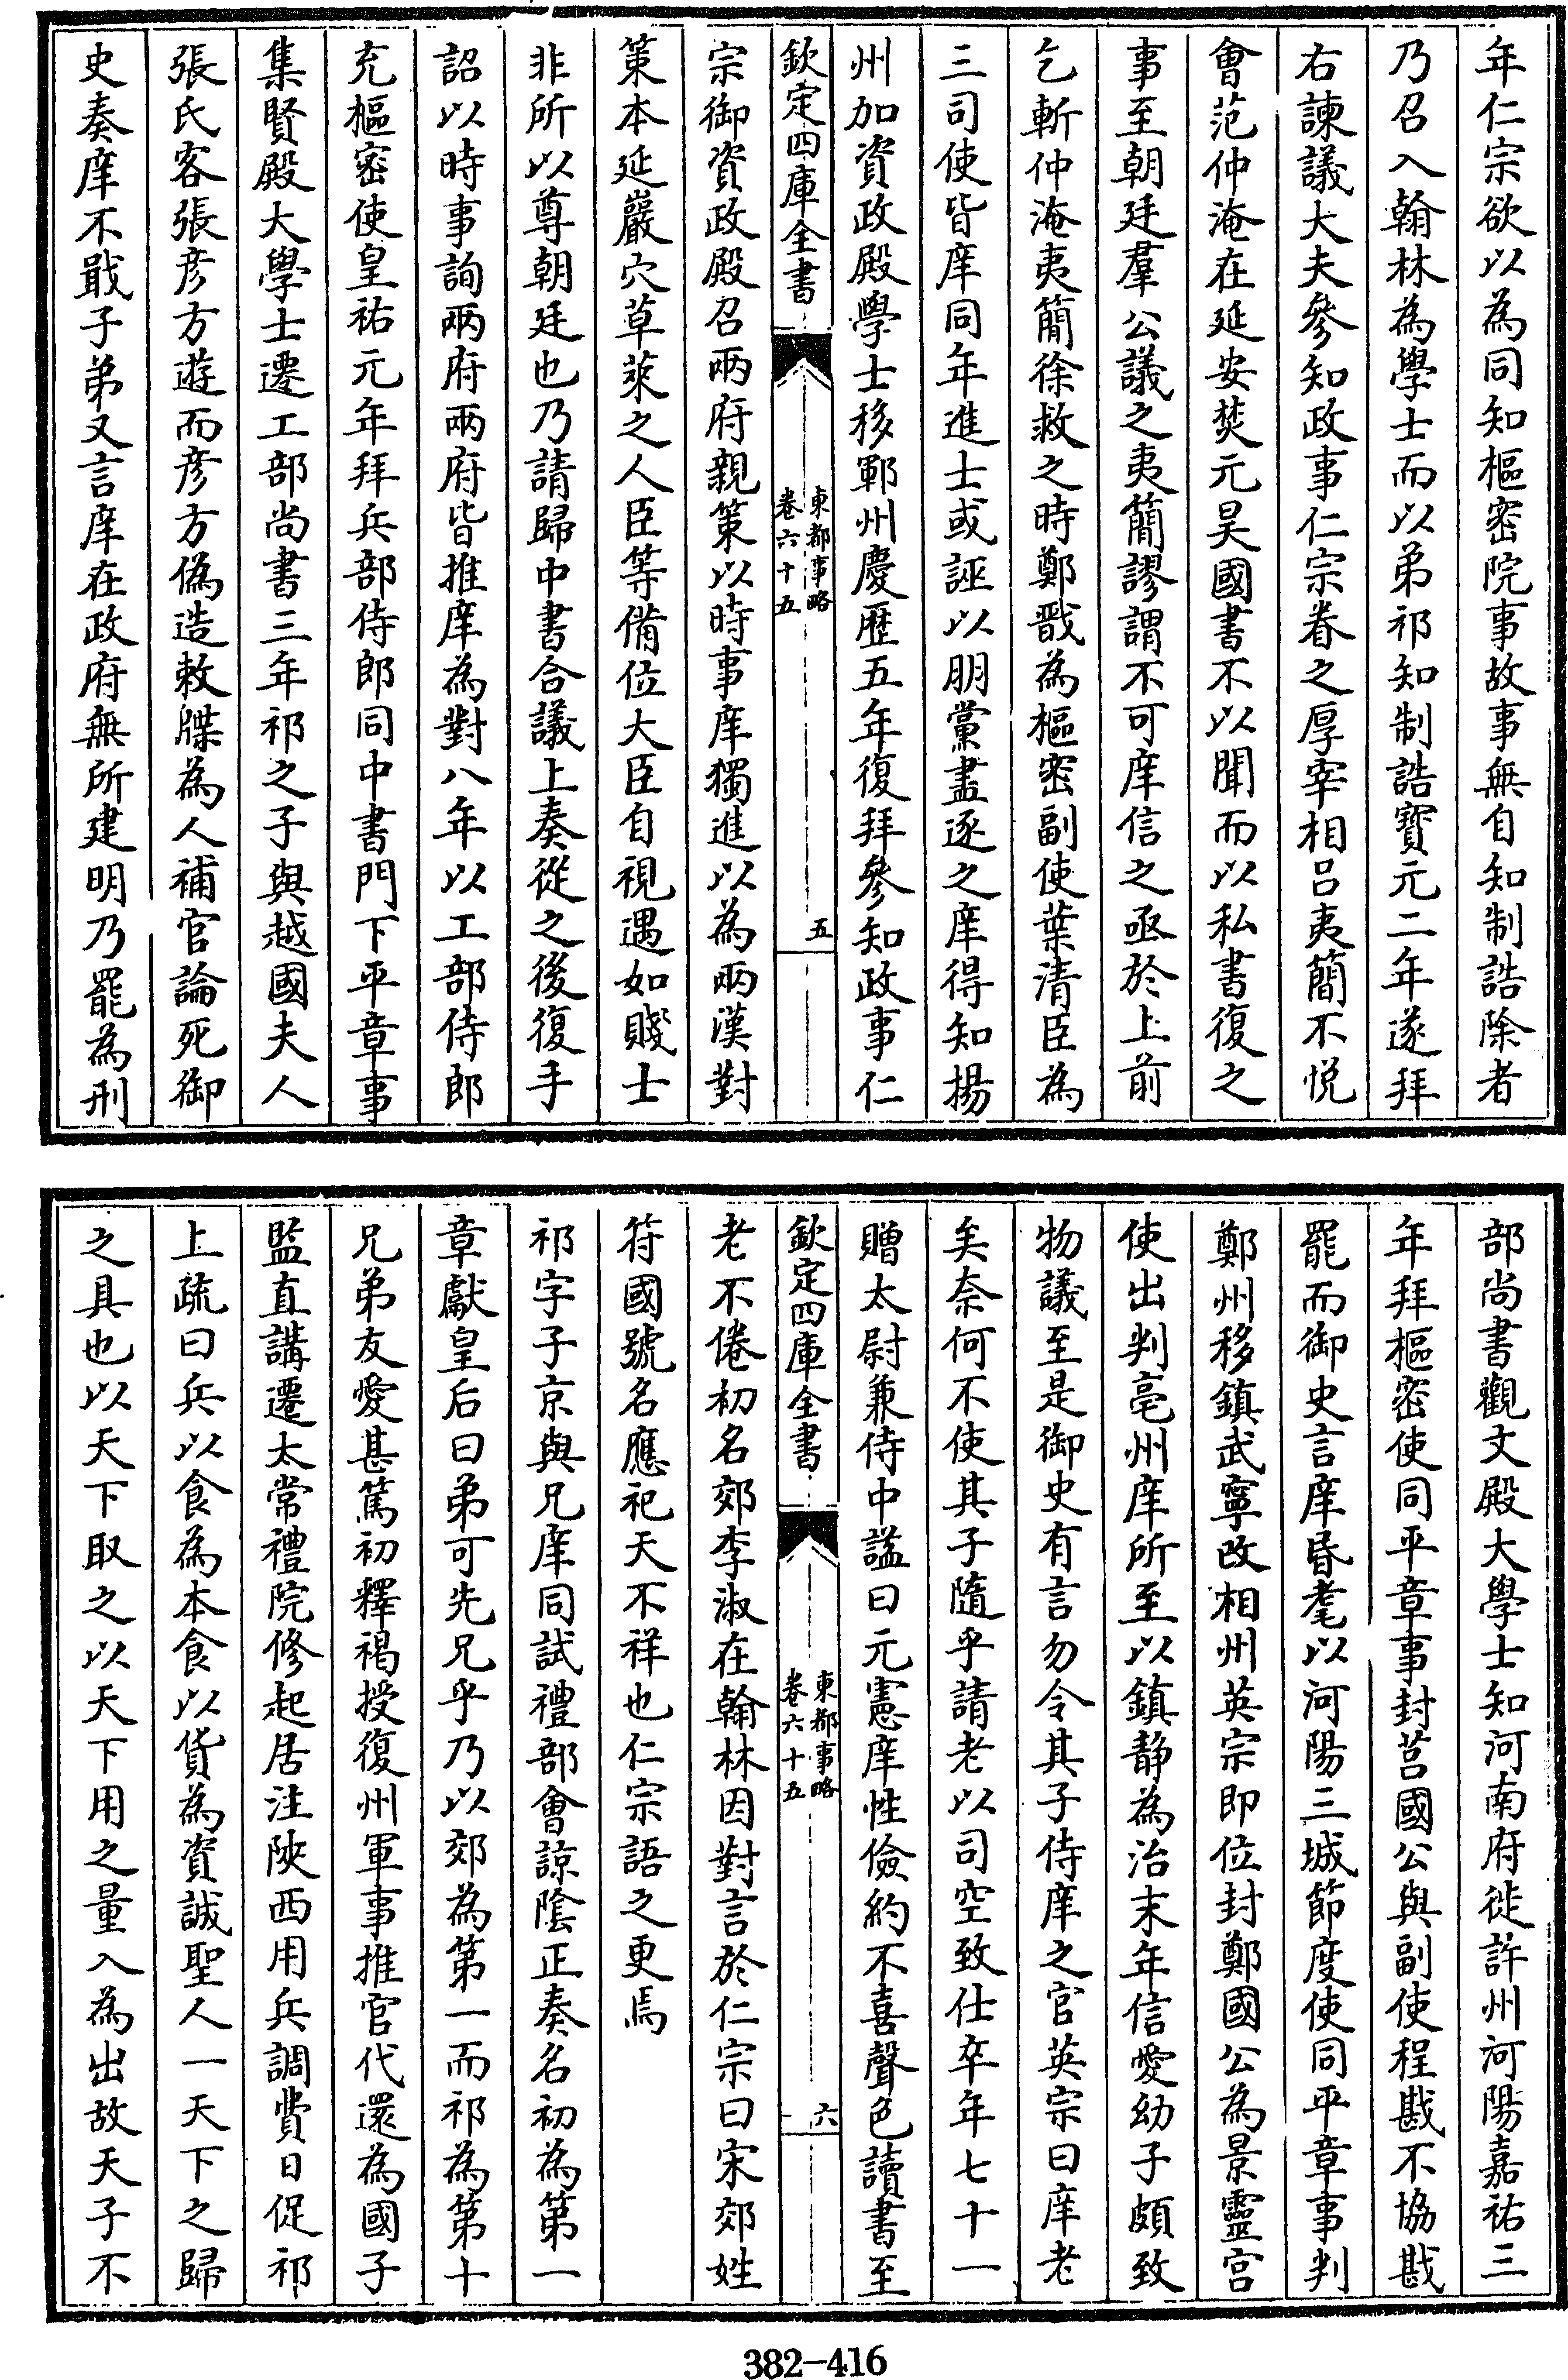 年仁宗欲以為同知樞密院事故事無自知制誥除者
乃召入翰林為學士而以弟祁知制誥寶元二年遂拜
右諫議大夫參知政事仁宗眷之厚宰相呂夷簡不悅
會范仲淹在延安焚元昊國書不以聞而以私書復之
事至朝廷羣公議之夷簡謬謂不可庠信之亟於上前
乞斬仲淹夷簡徐救之時鄭戩為樞密副使葉清臣為
三司使皆庠同年進士或誣以朋黨盡逐之庠得知揚
州加資政殿學士移鄆州慶歷五年復拜參知政事仁
欽定四庫全書
東都事略
卷六十五
五
宗御資政殿召兩府親策以時事庠獨進以為兩漢對
策本延巖穴草萊之人臣等備位大臣自視遇如賤士
非所以尊朝廷也乃請歸中書合議上奏從之後復手
詔以時事詢兩府兩府皆推庠為對八年以工部侍郎
充樞密使皇祐元年拜兵部侍郎同中書門下平章事
集賢殿大學士遷工部尚書三年祁之子與越國夫人
張氏客張彥方遊而彥方偽造敕牒為人補官論死御
史奏庠不戢子弟又言庠在政府無所建明乃罷為刑
部尚書觀文殿大學士知河南府徙許州河陽嘉祐三
年拜樞密使同平章事封莒國公與副使程戡不協戡
罷而御史言庠昏耄以河陽三城節度使同平章事判
鄭州移鎮武寧改相州英宗即位封鄭國公為景靈宮
使出判亳州庠所至以鎮靜為治末年信愛幼子頗致
物議至是御史有言勿令其子侍庠之官英宗曰庠老
矣奈何不使其子隨乎請老以司空致仕卒年七十一
贈太尉兼侍中謚曰元憲庠性儉約不喜聲色讀書至
欽定四庫全書
東都事略
卷六十五
六
老不倦初名郊李淑在翰林因對言於仁宗曰宋郊姓
符國號名應祀天不祥也仁宗語之更焉
祁字子京與兄庠同試禮部會諒陰正奏名初為第一
章獻皇后曰弟可先兄乎乃以郊為第一而祁為第十
兄弟友愛甚篤初釋褐授復州軍事推官代還為國子
監直講遷太常禮院修起居注陜西用兵調費日促祁
上疏曰兵以食為本食以貨為資誠聖人一天下之歸
之具也以天下取之以天下用之量入為出故天子不
382-416